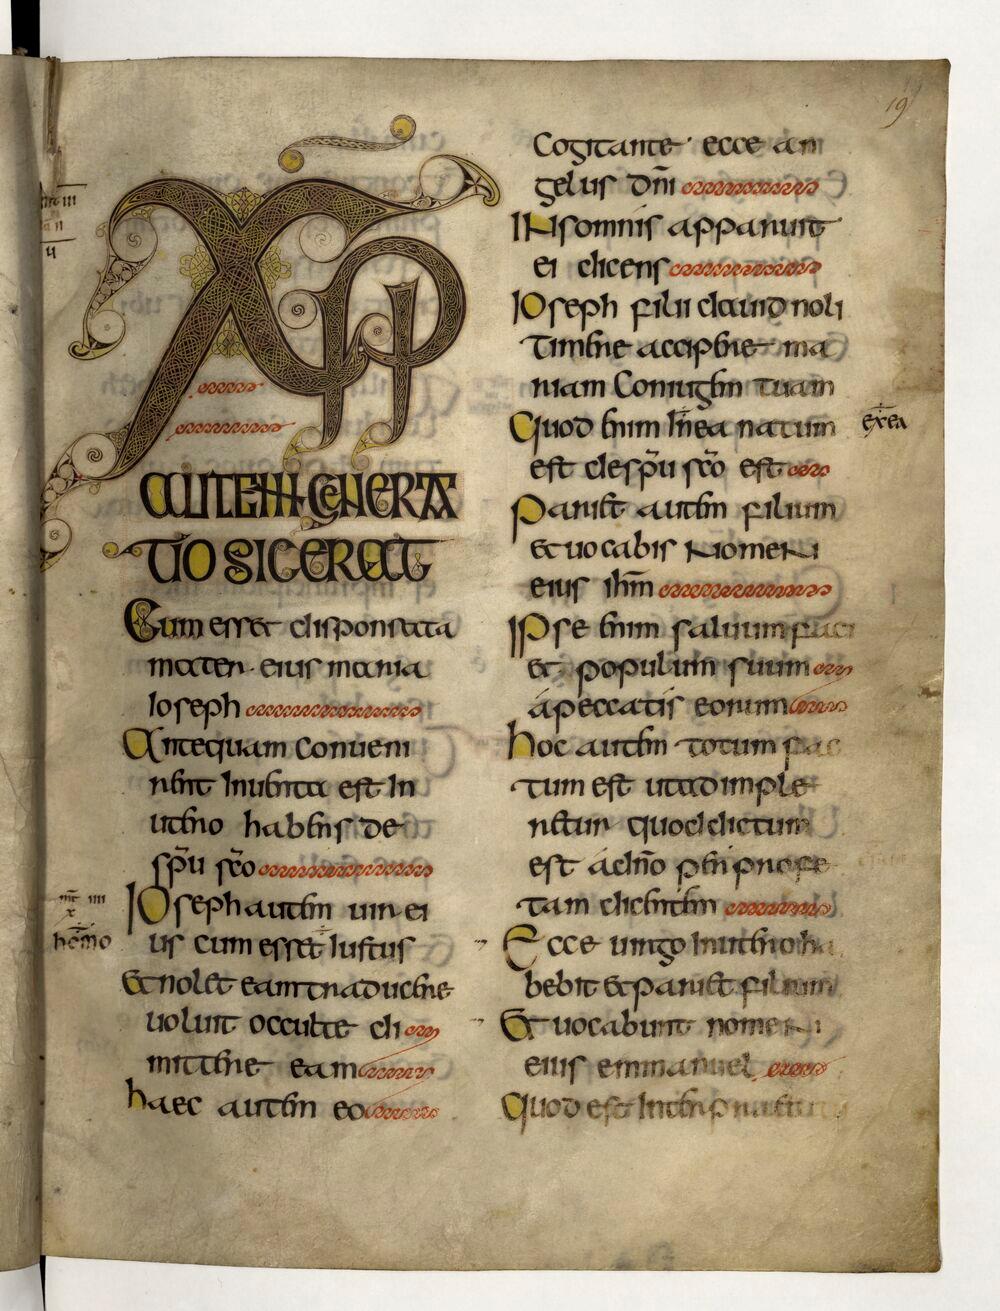 19
XPI
AUTEM GENERA
TIO SIC ERAT
Cum esset disponsata
mater eius maria
Ioseph
Antequam conueni
rent inuenta est in
utero habens de
sp̄u sc̄o
Ioseph autem uir ei
us cum esset iustus
Et nollet eam traducere
uoluit occulte di
mittere eam
haec autem eo
Cogitante ecce an
gelus dn̄i
IN somnis apparuit
ei dicens
Ioseph filii dauid noli
timere accipere ma
riam coniugem tuam
Quod enim in ea natum
exea
est de sp̄u sc̄o est
Pariet autem filium
et uocabis nomen
eius ih̄m
Ipse enim saluum faci
et populum suum
a peccatis eorum
hoc autem totum fac
tum est ut adimple
retur quod dictum
est a dn̄o per profe
tam dicentem
Ecce uirgo in utero ha
bebit et pariet filium
Et uocabunt nomen
eius emmanuel
Quod est